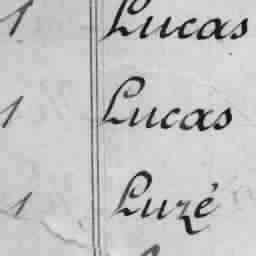 1 Lucas
1 Lucas
1 Luzé